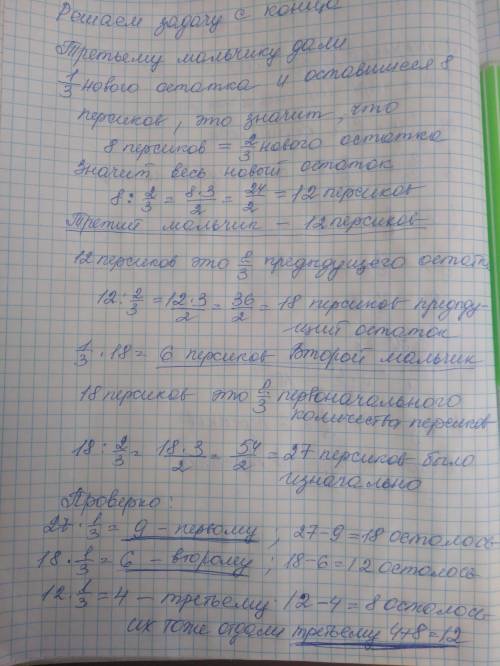 Решаем задачу с конца
Третьему мальчику дали
1/3 нового остатка и оставшиеся 8
персиков, это значит, что
8 персиков = 2/3 нового остатка
Значит весь новый остаток
8 : 2/3 = 8·3/2 = 24/2 = 12 персиков
Третий мальчик – 12 персиков
12 персиков это 2/3 предыдущего остатка
12 : 2/3 = 12·3/2 = 36/2 = 18 персиков преды-
щий остаток
1/3 · 18 = 6 персиков Второй мальчик
18 персиков это 2/3 первоначального
количества персиков
18 : 2/3 = 18·3/2 = 54/2 = 27 персиков было
изначально
Проверка:
27 · 1/3 = 9 – первому ; 27-9=18 осталось
18 · 1/3 = 6 – второму ; 18-6=12 осталось
12 · 1/3 = 4 – третьему 12-4=8 осталось
их тоже отдали третьему 4+8=12